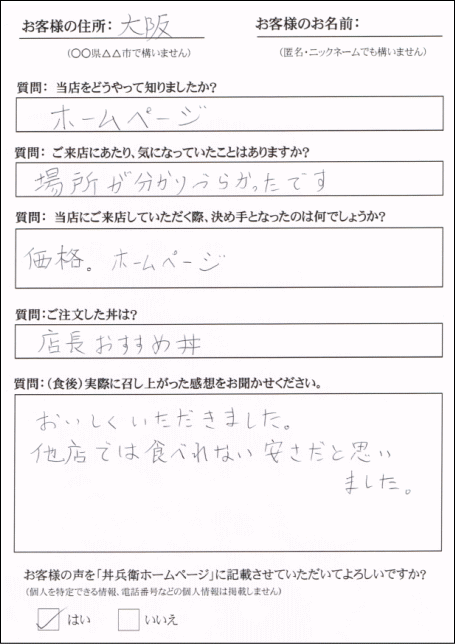 お客様の住所： 大阪 お客様のお名前：
（〇〇県△△市で構いません） （匿名・ニックネームでも構いません）
質問： 当店をどうやって知りましたか？
ホームページ
質問： ご来店にあたり、気になっていたことはありますか？
場所が分かりづらかったです
質問： 当店にご来店していただく際、決め手となったのは何でしょうか？
価格。ホームページ
質問：ご注文した丼は？
店長おすすめ丼
質問：（食後）実際に召し上がった感想をお聞かせください。
おいしくいただきました。
他店では食べれない安さだと思い
ました。
お客様の声を「丼兵衛ホームページ」に記載させていただいてよろしいですか？
（個人を特定できる情報、電話番号などの個人情報は掲載しません）
はい いいえ